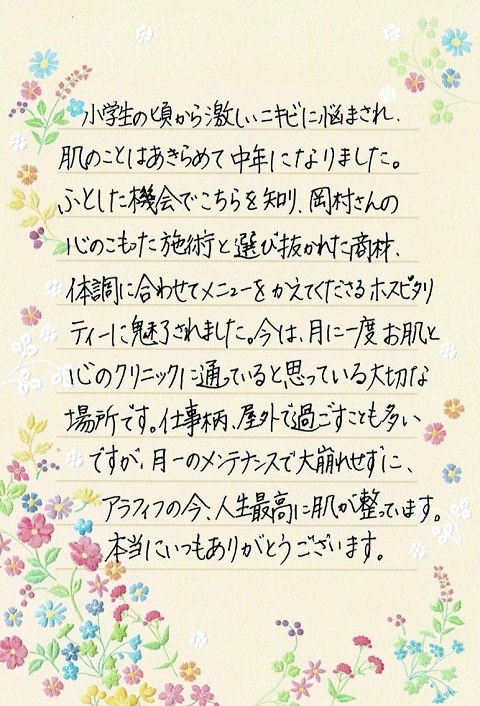 小学生の頃から激しいニキビに悩まされ、
肌のことはあきらめて中年になりました。
ふとした機会でこちらを知り、岡村さんの
心のこもった施術と選び抜かれた商材、
体調に合わせてメニューをかえてくださるホスピタリ
ティーに魅了されました。今は、月に一度お肌と
心のクリニックに通っていると思っている大切な
場所です。仕事柄、屋外で過ごすことも多い
ですが、月一のメンテナンスで大崩れせずに、
アラフィフの今、人生最高に肌が整っています。
本当にいつもありがとうございます。